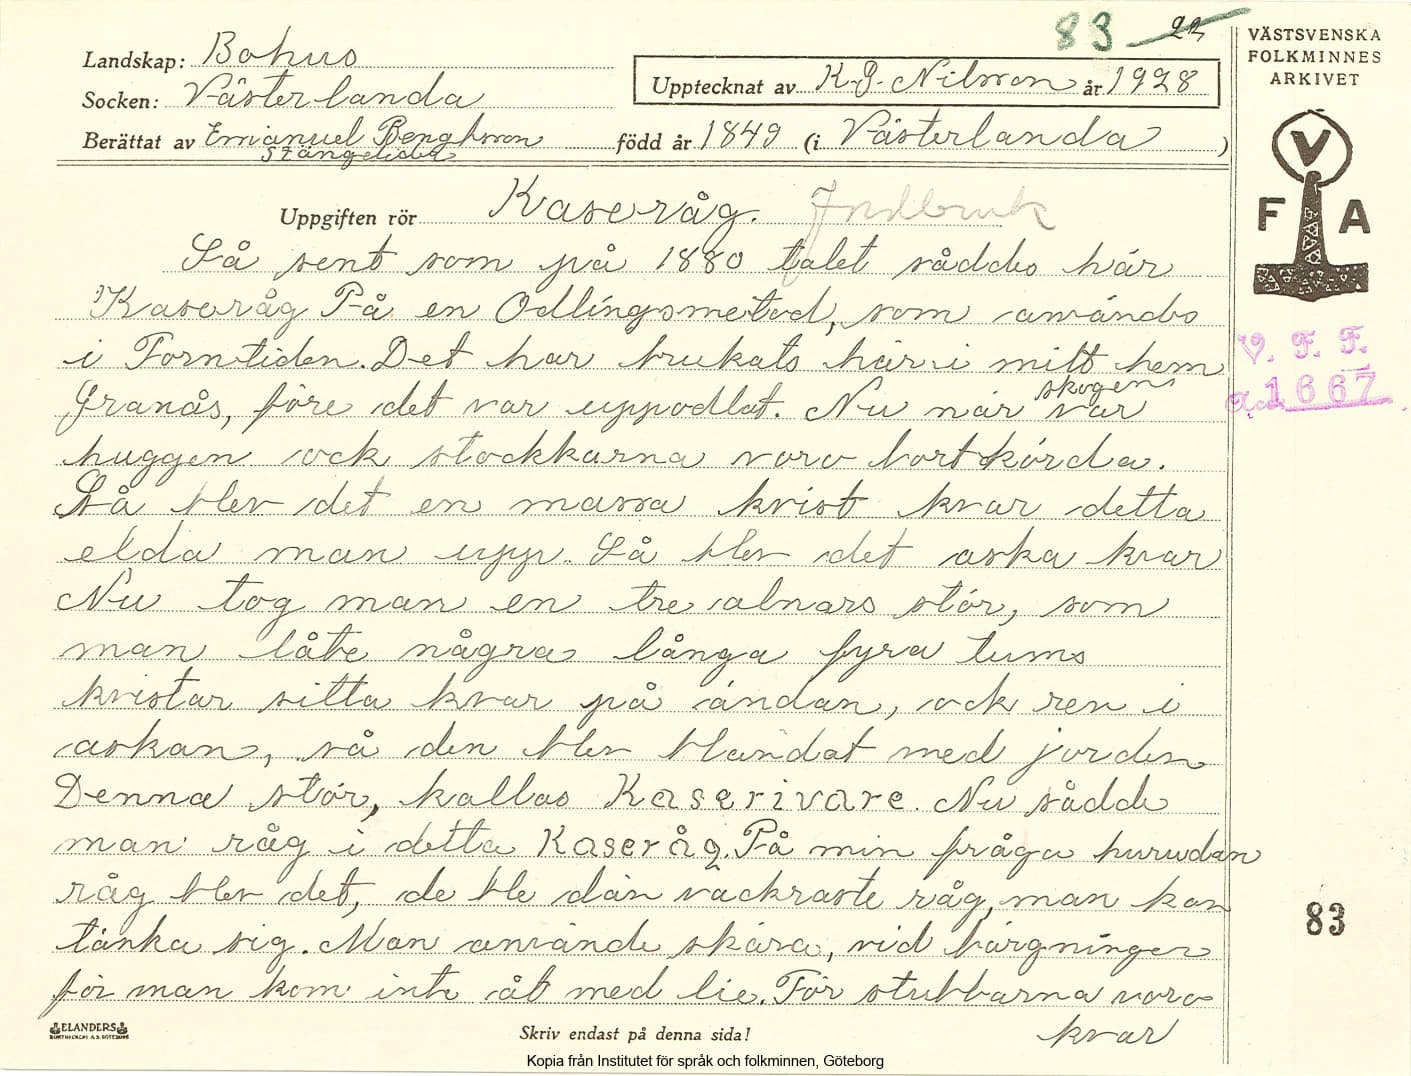 83 22
VÄSTSVENSKA
FOLKMINNES
ARKIVET
Landskap: Bohus
Socken: Västerlanda
Upptecknat av K.G. Nilsson år 1928
Berättat av Emanuel Bengtsson född år 1849 (i Västerlanda )
Stängelider
V
F A
Uppgiften rör Kaseråg. Jordbruk
Så sent som på 1880 talet såddes här
"Kaseråg På en Odlingsmetod, som användes
i Forntiden. Det har brukats här i mitt hem
Granås, före det var uppodlat. Nu när skogen var
huggen ock stockkarna voro bortkörda.
Så blev det en massa kvist kvar detta
elda man upp. Så blev det aska kvar
Nu tog man en tre alnars stör, som
man låte några långa fyra tums
kvistar sitta kvar på ändan, ock rev i
askan, så den blev blandat med jorden
Denna stör, kallas Kaserivare. Nu sådde
man råg i detta Kaseråg. På min fråga hurudan
råg blev det, de ble dän vackraste råg, man kan
tänka sig. Man använde skära, vid bärgningen
för man kom inte åt med lie. För stubbarna voro
kvar
V. F. F.
Acc. 1667
83
ELANDERS
BOKTRYCKERI A.B. GÖTEBORG
Skriv endast på denna sida!
Kopia från Institutet för språk och folkminnen, Göteborg